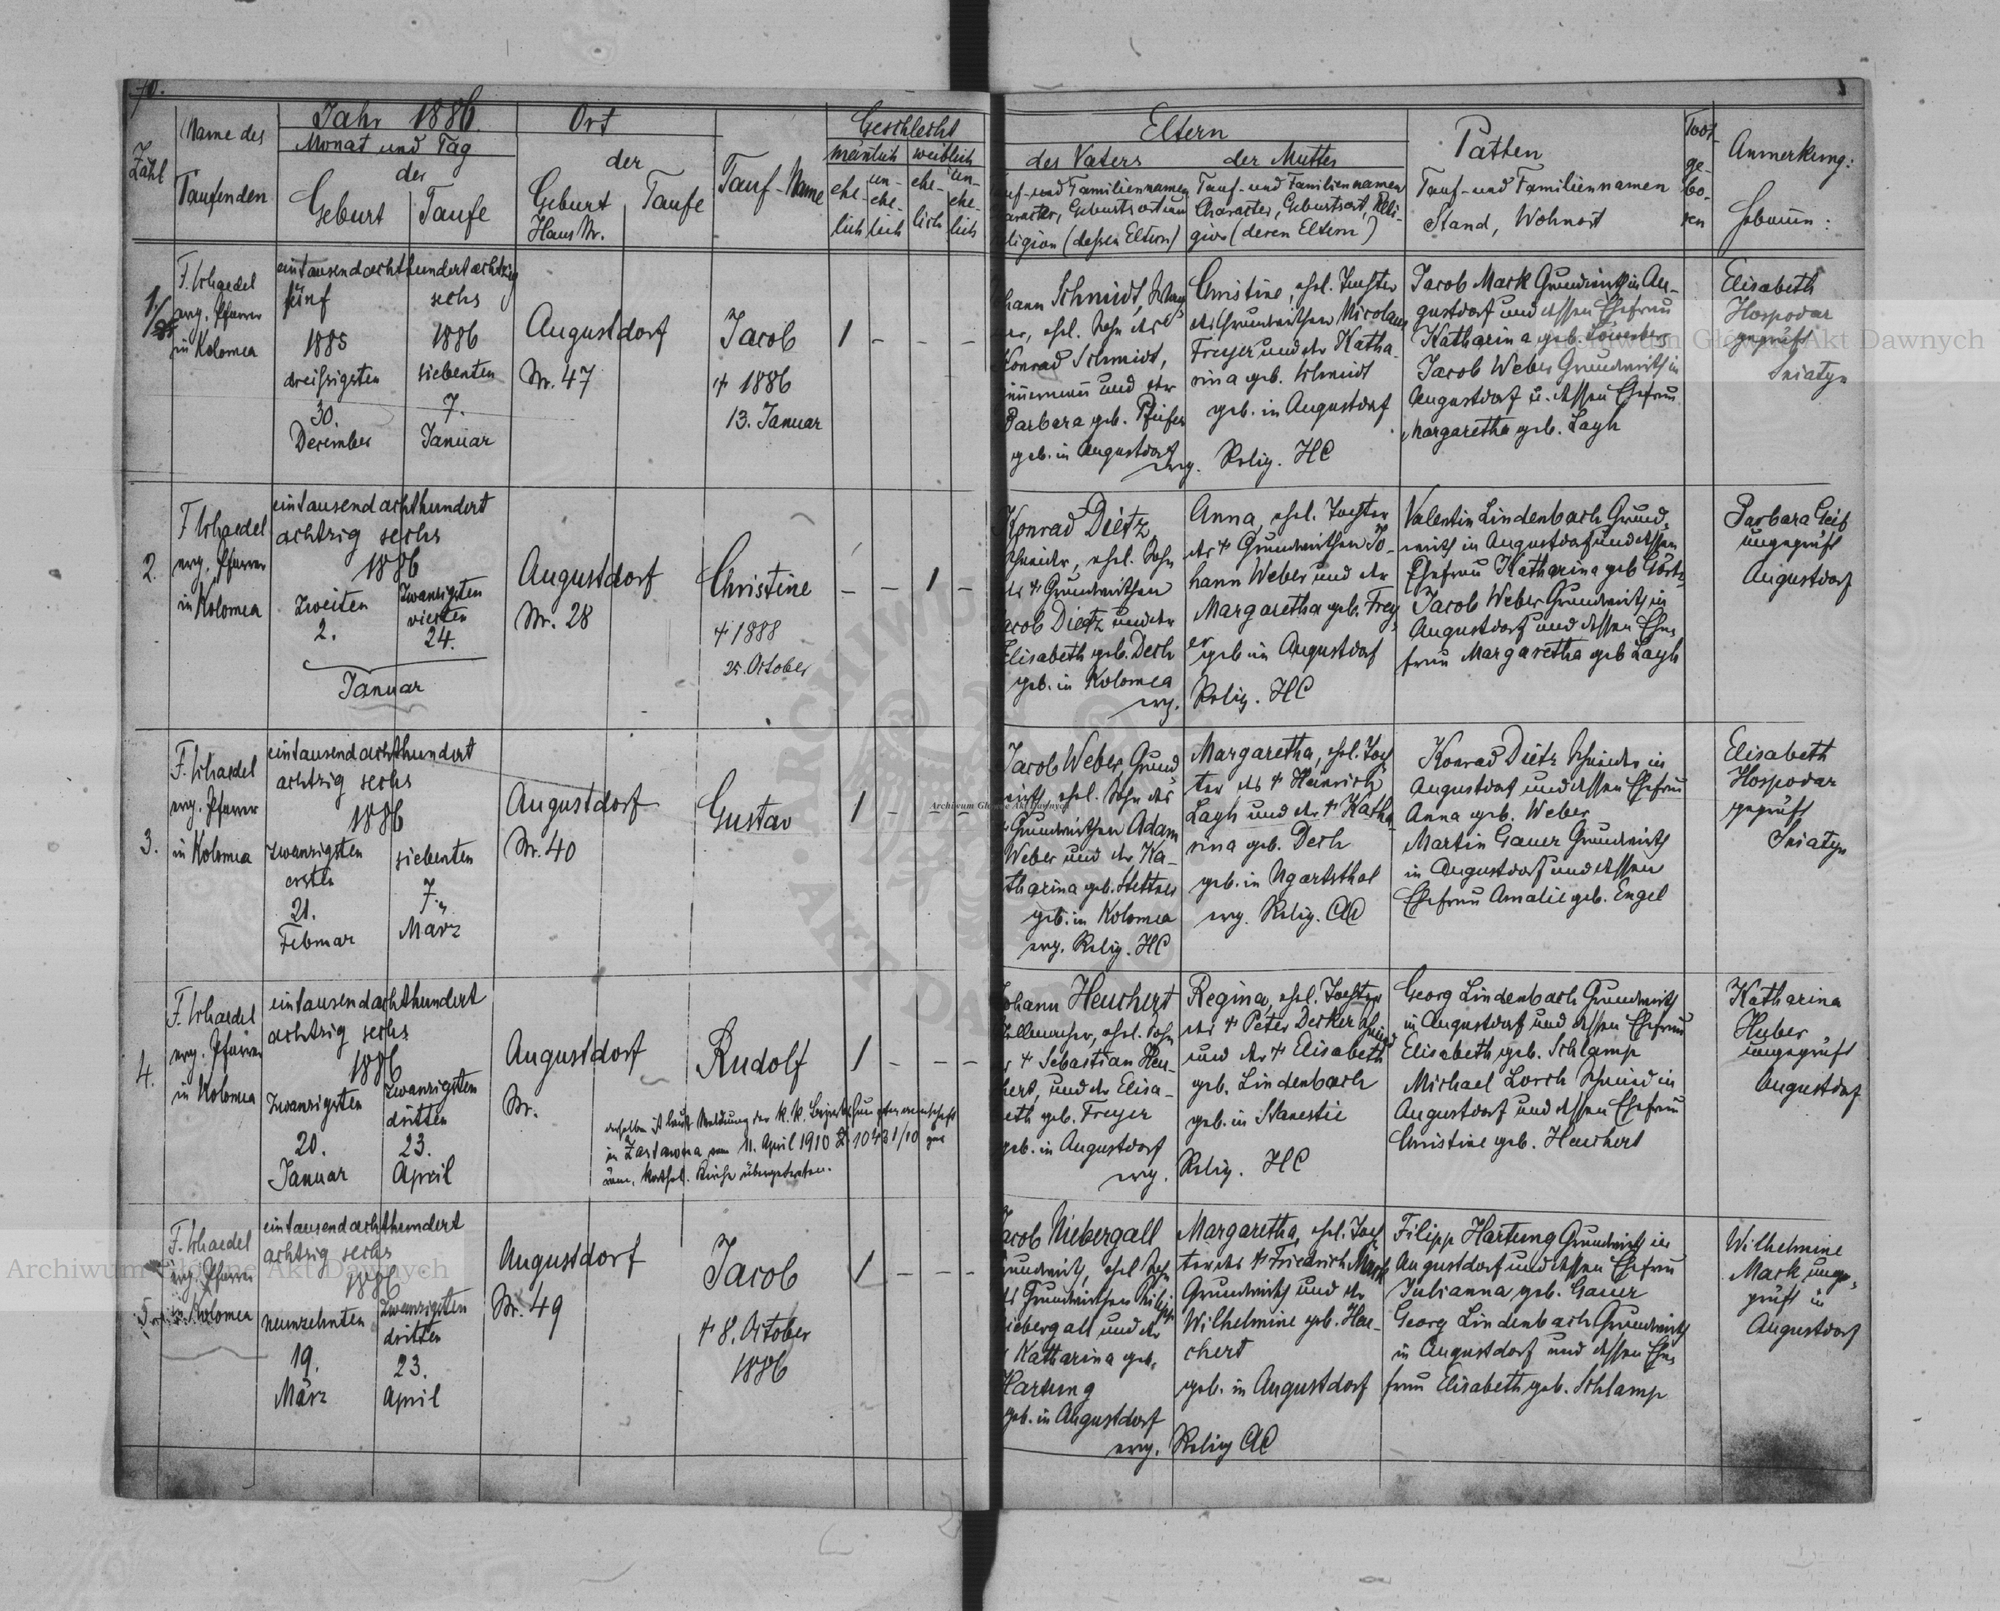 70.
Zahl
Name des
Taufenden
Jahr 1886.
Monat und Tag
der
Geburt
Taufe
Ort
der
Geburt
Taufe
Haus Nr.
Tauf-Name
Geschlecht
mänlich
weiblich
ehe-
lich
un-
ehe-
lich
ehe-
lich
un-
ehe-
lich
Eltern
des Vaters
Tauf- und Familiennamen
Character, Geburtsort
Religion (dessen Eltern)
der Mutter
Tauf- und Familiennamen
Character, Geburtsort, Reli-
gion (deren Eltern)
Pathen
Tauf- und Familiennamen
Stand, Wohnort
Todt-
ge-
bo-
ren
Anmerkung:
Hebamme:
F. Schaedel
evg. Pfarrer
in Kolomea
eintausendachthundertachtzig
fünf
1885
dreissigsten
30.
December
sechs
1886
siebenten
7.
Januar
Augustdorf
Nr. 47
Jacob
+ 1886
13. Januar
1 - - -
Johann Schmidt,
ehel. Sohn des
Konrad Schmidt,
und der
Barbara geb. Pfeifer
geb. in Augustdorf
Christine, ehel. Tochter
des Grundwirthen Nicolaus
Freyer und der Katha-
rina geb. Schmidt
geb. in Augustdorf
evg. Relig. HC
Jacob Mack Grundwirth in Au-
gustdorf und dessen Ehefrau
Katharina geb.
Jacob Weber Grundwirth in
Augustdorf u. dessen Ehefrau
Margaretha geb. Lagh
Elisabeth
Hospodar
geprüft
Sniatyn
2.
F Schaedel
evg. Pfarrer
in Kolomea
eintausendachthundert
achtzig sechs
1886
zweiten
2.
zwanzigsten
vierten
24.
Januar
Augustdorf
Nr. 28
Christine
+ 1888
25. October
- - 1 -
Konrad Dietz
Schneider, ehel. Sohn
des + Grundwirthen
Jacob Dietz und der
Elisabeth geb. Desch
geb. in Kolomea
Anna, ehel. Tochter
des + Grundwirthen Jo-
hann Weber und der
Margaretha geb. Frey-
er
geb in Augustdorf
evg. Relig. HC
Valentin Lindenbach Grund-
wirth in Augustdorf und dessen
Ehefrau Katharina geb Görtz
Jacob Weber Grundwirth in
Augustdorf und dessen Ehe-
frau Margaretha geb Lagh
Barbara Geib
ungeprüft
Augustdorf
3.
F. Schaedel
evg. Pfarrer
in Kolomea
eintausendachthundert
achtzig sechs
1886
zwanzigsten
ersten
21.
Februar
siebenten
7.
März
Augustdorf
Nr. 40
Gustav
1 - - -
Jacob Weber, Grund
wirth, ehel. Sohn des
+ Grundwirthen Adam
Weber und der Ka-
tharina geb. Stettner
geb. in Kolomea
evg. Relig. HC
Margaretha, ehel. Toch
ter des + Heinrich
Lagh und der + Katha-
rina geb. Desch
geb. in Ugartsthal
evg. Relig. AC
Konrad Dietz Schneider in
Augustdorf und dessen Ehefrau
Anna geb. Weber
Martin Gauer Grundwirth
in Augustdorf und dessen
Ehefrau Amalie geb. Engel
Elisabeth
Hospodar
geprüft
Sniatyn
4.
F. Schaedel
evg. Pfarrer
in Kolomea
eintausendachthundert
achtzig sechs
1886
zwanzigsten
20.
Januar
zwanzigsten
dritten
23.
April
Augustdorf
Nr.
Rudolf
1 - - -
derselbe ist laut Meldung der k. k. Bezirkshauptmannschaft
in Zastawna vom 11. April 1910 Z. 10431/10 zur
röm. kathol. Kirche übergetreten.
Johann Heuchert
ehel. Sohn
+ Sebastian Heu-
chert, und der Elisa-
beth geb. Freyer
geb. in Augustdorf
Regina, ehel. Tochter
des + Peter Decker
und der + Elisabeth
geb. Lindenbach
geb. in Stanestie
evg. Relig. HC
Georg Lindenbach Grundwirth
in Augustdorf und dessen Ehefrau
Elisabeth geb. Schlamp
Michael Lorch Schmied in
Augustdorf und dessen Ehefrau
Christine geb. Heuchert
Katharina
Huber
ungeprüft
Augustdorf
5.
F. Schaedel
evg. Pfarrer
in Kolomea
eintausendachthundert
achtzig sechs
1886
neunzehnten
19.
März
zwanzigsten
dritten
23.
April
Augustdorf
Nr. 49
Jacob
+ 8. October
1886
1 - - -
Jacob Niebergall
Grundwirth, ehel Sohn
des Grundwirthen Philipp
Niebergall und der
Katharina geb.
Hartung
geb. in Augustdorf
Margaretha, ehel. Toch
ter des + Friedrich Mack
Grundwirth und der
Wilhelmine geb. Heu-
chert
geb. in Augustdorf
evg. Relig AC
Filipp Hartung Grundwirth in
Augustdorf und dessen Ehefrau
Julianna, geb. Gauer
Georg Lindenbach Grundwirth
in Augustdorf und dessen Ehe-
frau Elisabeth, geb. Schlamp
Wilhelmine
Mack, unge-
prüft in
Augustdorf
Archiwum Główne Akt Dawnych
Archiwum Główne Akt Dawnych
Archiwum Główne Akt Dawnych